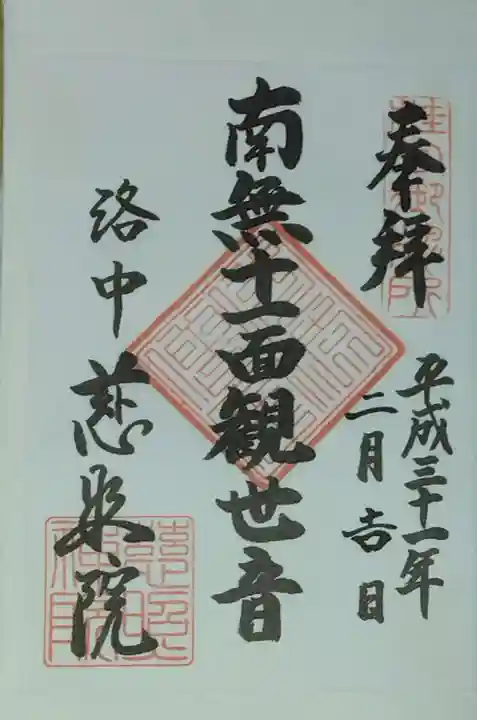 奉拝
平成三十一年
二月吉日
南無十一面観世音
洛中 慈眼院